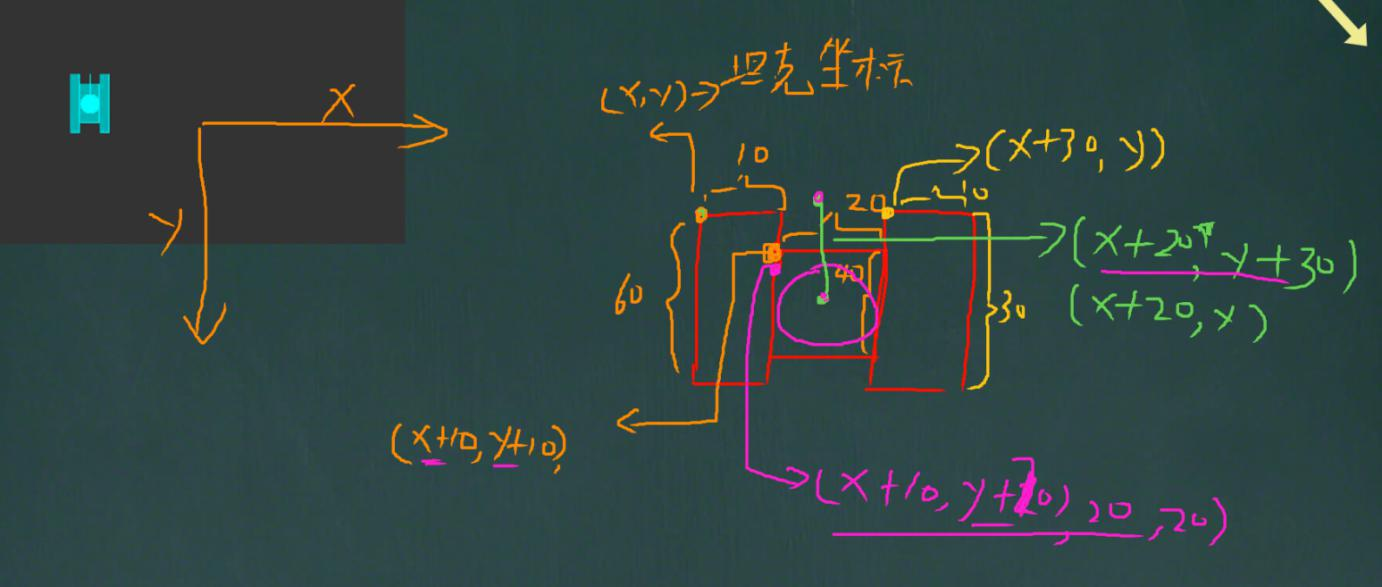 X
y
(x,y)→坦克坐标
10
20
10
(x+30, y)
60
40
30
(x+20, y+30)
(x+20, y)
(x+10, y+10)
(x+10, y+20), 20, 20)